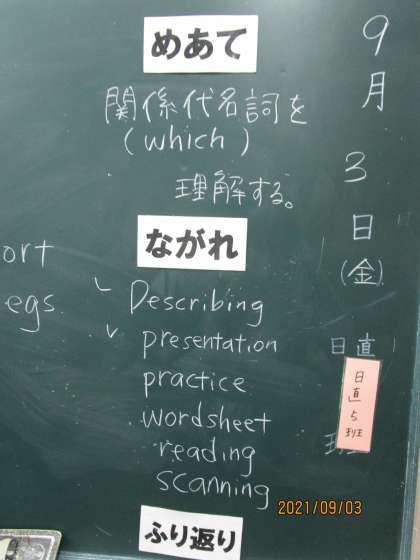 めあて
関係代名詞を
(which)
理解する。
ながれ
Describing
presentation
practice
wordsheet
reading
scanning
ふり返り
ort
egs
9月3日(金)
日直
日直5班
班
2021/09/03